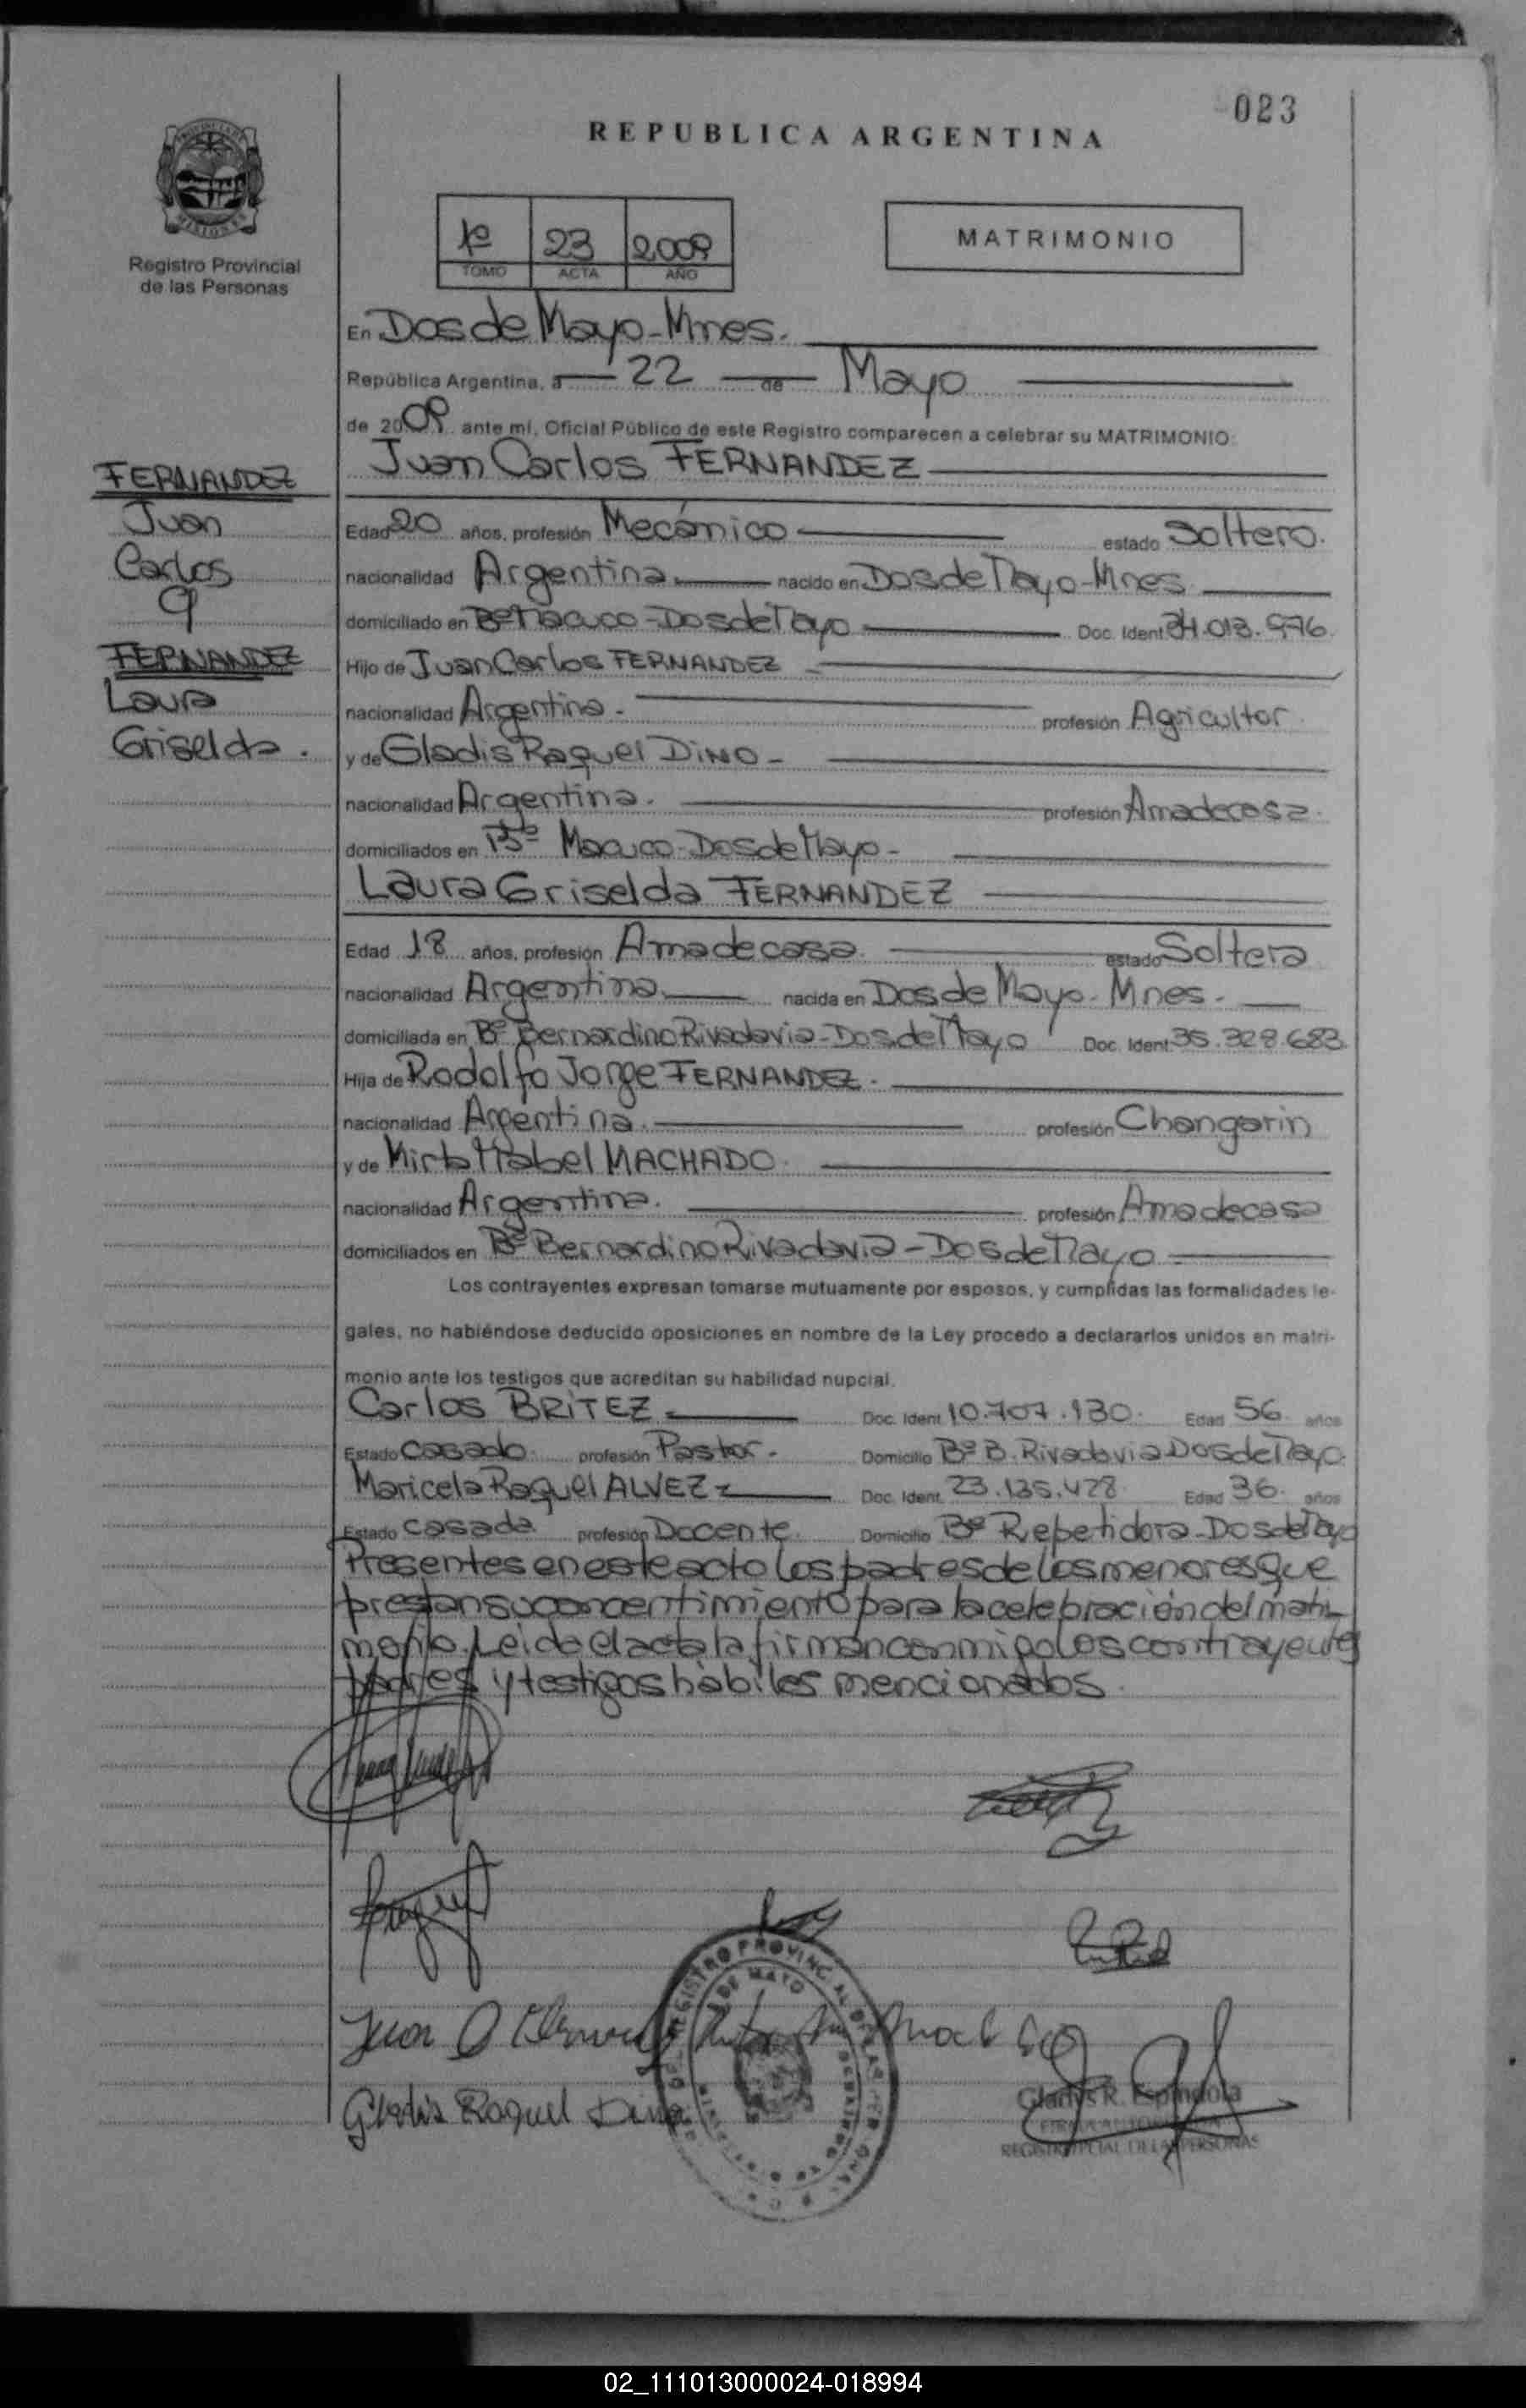 023
REPUBLICA ARGENTINA
Registro Provincial
de las Personas
1º 23 2009
TOMO ACTA AÑO
MATRIMONIO
En Dos de Mayo - Mnes.
República Argentina, a 22 de Mayo
de 2009 ante mí, Oficial Público de este Registro comparecen a celebrar su MATRIMONIO:
Juan Carlos FERNANDEZ
FERNANDEZ
Juan
Carlos
FERNANDEZ
Laura
Griselda.
Edad 20 años, profesión Mecánico estado Soltero.
nacionalidad Argentina. nacido en Dos de Mayo - Mnes
domiciliado en Bº Macuco - Dos de Mayo Doc. Ident. 34.013.976.
Hijo de Juan Carlos FERNANDEZ
nacionalidad Argentina - profesión Agricultor
y de Gladis Raquel DINO -
nacionalidad Argentina. profesión Ama de casa.
domiciliados en Bº Macuco - Dos de Mayo -
Laura Griselda FERNANDEZ
Edad 18 años, profesión Ama de casa. estado Soltera
nacionalidad Argentina. nacida en Dos de Mayo - Mnes.
domiciliada en Bº Bernardino Rivadavia - Dos de Mayo Doc. Ident. 35.328.683
Hija de Rodolfo Jorge FERNANDEZ.
nacionalidad Argentina. profesión Changarin
y de Mirta Mabel MACHADO.
nacionalidad Argentina. profesión Ama de casa
domiciliados en Bº Bernardino Rivadavia - Dos de Mayo
Los contrayentes expresan tomarse mutuamente por esposos, y cumplidas las formalidades le-
gales, no habiéndose deducido oposiciones en nombre de la Ley procedo a declararlos unidos en matri-
monio ante los testigos que acreditan su habilidad nupcial.
Carlos BRITEZ Doc. Ident. 10.707.130. Edad 56 años
Estado Casado. profesión Pastor. Domicilio Bº B. Rivadavia Dos de Mayo.
Maricela Raquel ALVEZ Doc. Ident. 23.135.428 Edad 36. años
Estado Casada profesión Docente. Domicilio Bº Repetidora - Dos de Mayo
Presentes en este acto los padres de los menores que
prestan su concentimiento para la celebración del matri-
monio. Leida el acta la firman conmigo los contrayentes
padres y testigos hábiles mencionados.
Gladis Raquel Dino
Gladys R. Espindola
FIRMA AUTORIZADA
REGISTRO PCIAL. DE LAS PERSONAS
02_111013000024-018994